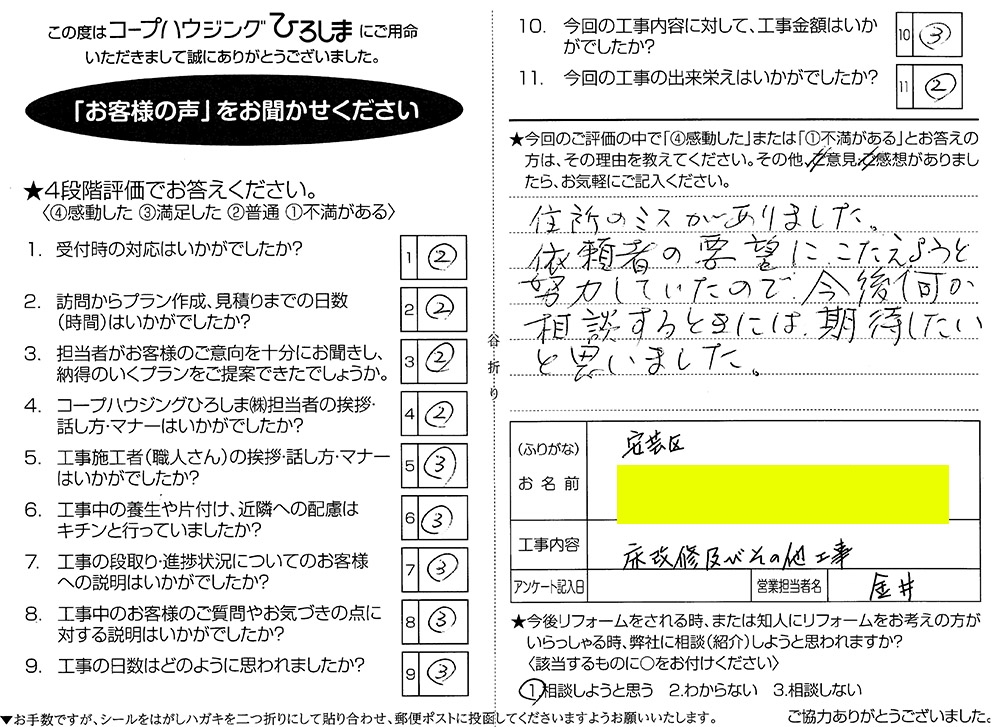 この度はコープハウジングひろしまにご用命
いただきまして誠にありがとうございました。
「お客様の声」をお聞かせください
★4段階評価でお答えください。
〈④感動した ③満足した ②普通 ①不満がある〉
1. 受付時の対応はいかがでしたか?
1 ②
2. 訪問からプラン作成、見積りまでの日数
(時間)はいかがでしたか?
2 ②
3. 担当者がお客様のご意向を十分にお聞きし、
納得のいくプランをご提案できたでしょうか。
3 ②
4. コープハウジングひろしま㈱担当者の挨拶・
話し方・マナーはいかがでしたか?
4 ②
5. 工事施工者(職人さん)の挨拶・話し方・マナー
はいかがでしたか?
5 ③
6. 工事中の養生や片付け、近隣への配慮は
キチンと行っていましたか?
6 ③
7. 工事の段取り・進捗状況についてのお客様
への説明はいかがでしたか?
7 ③
8. 工事中のお客様のご質問やお気づきの点に
対する説明はいかがでしたか?
8 ③
9. 工事の日数はどのように思われましたか?
9 ③
▼お手数ですが、シールをはがしハガキを二つ折りにして貼り合わせ、郵便ポストに投函してくださいますようお願いいたします。
谷折り
10. 今回の工事内容に対して、工事金額はいか
がでしたか?
10 ③
11. 今回の工事の出来栄えはいかがでしたか?
11 ②
★今回のご評価の中で「④感動した」または「①不満がある」とお答えの
方は、その理由を教えてください。その他、ご意見、ご感想がありまし
たら、お気軽にご記入ください。
住所のミスがありました。
依頼者の要望にこたえようと
努力していたので、今後何か
相談するときには、期待したい
と思いました。
(ふりがな)
お名前
安芸区
工事内容
床改修及びその他工事
アンケート記入日
営業担当者名
金井
★今後リフォームをされる時、または知人にリフォームをお考えの方が
いらっしゃる時、弊社に相談(紹介)しようと思われますか?
〈該当するものに○をお付けください〉
①相談しようと思う 2.わからない 3.相談しない
ご協力ありがとうございました。